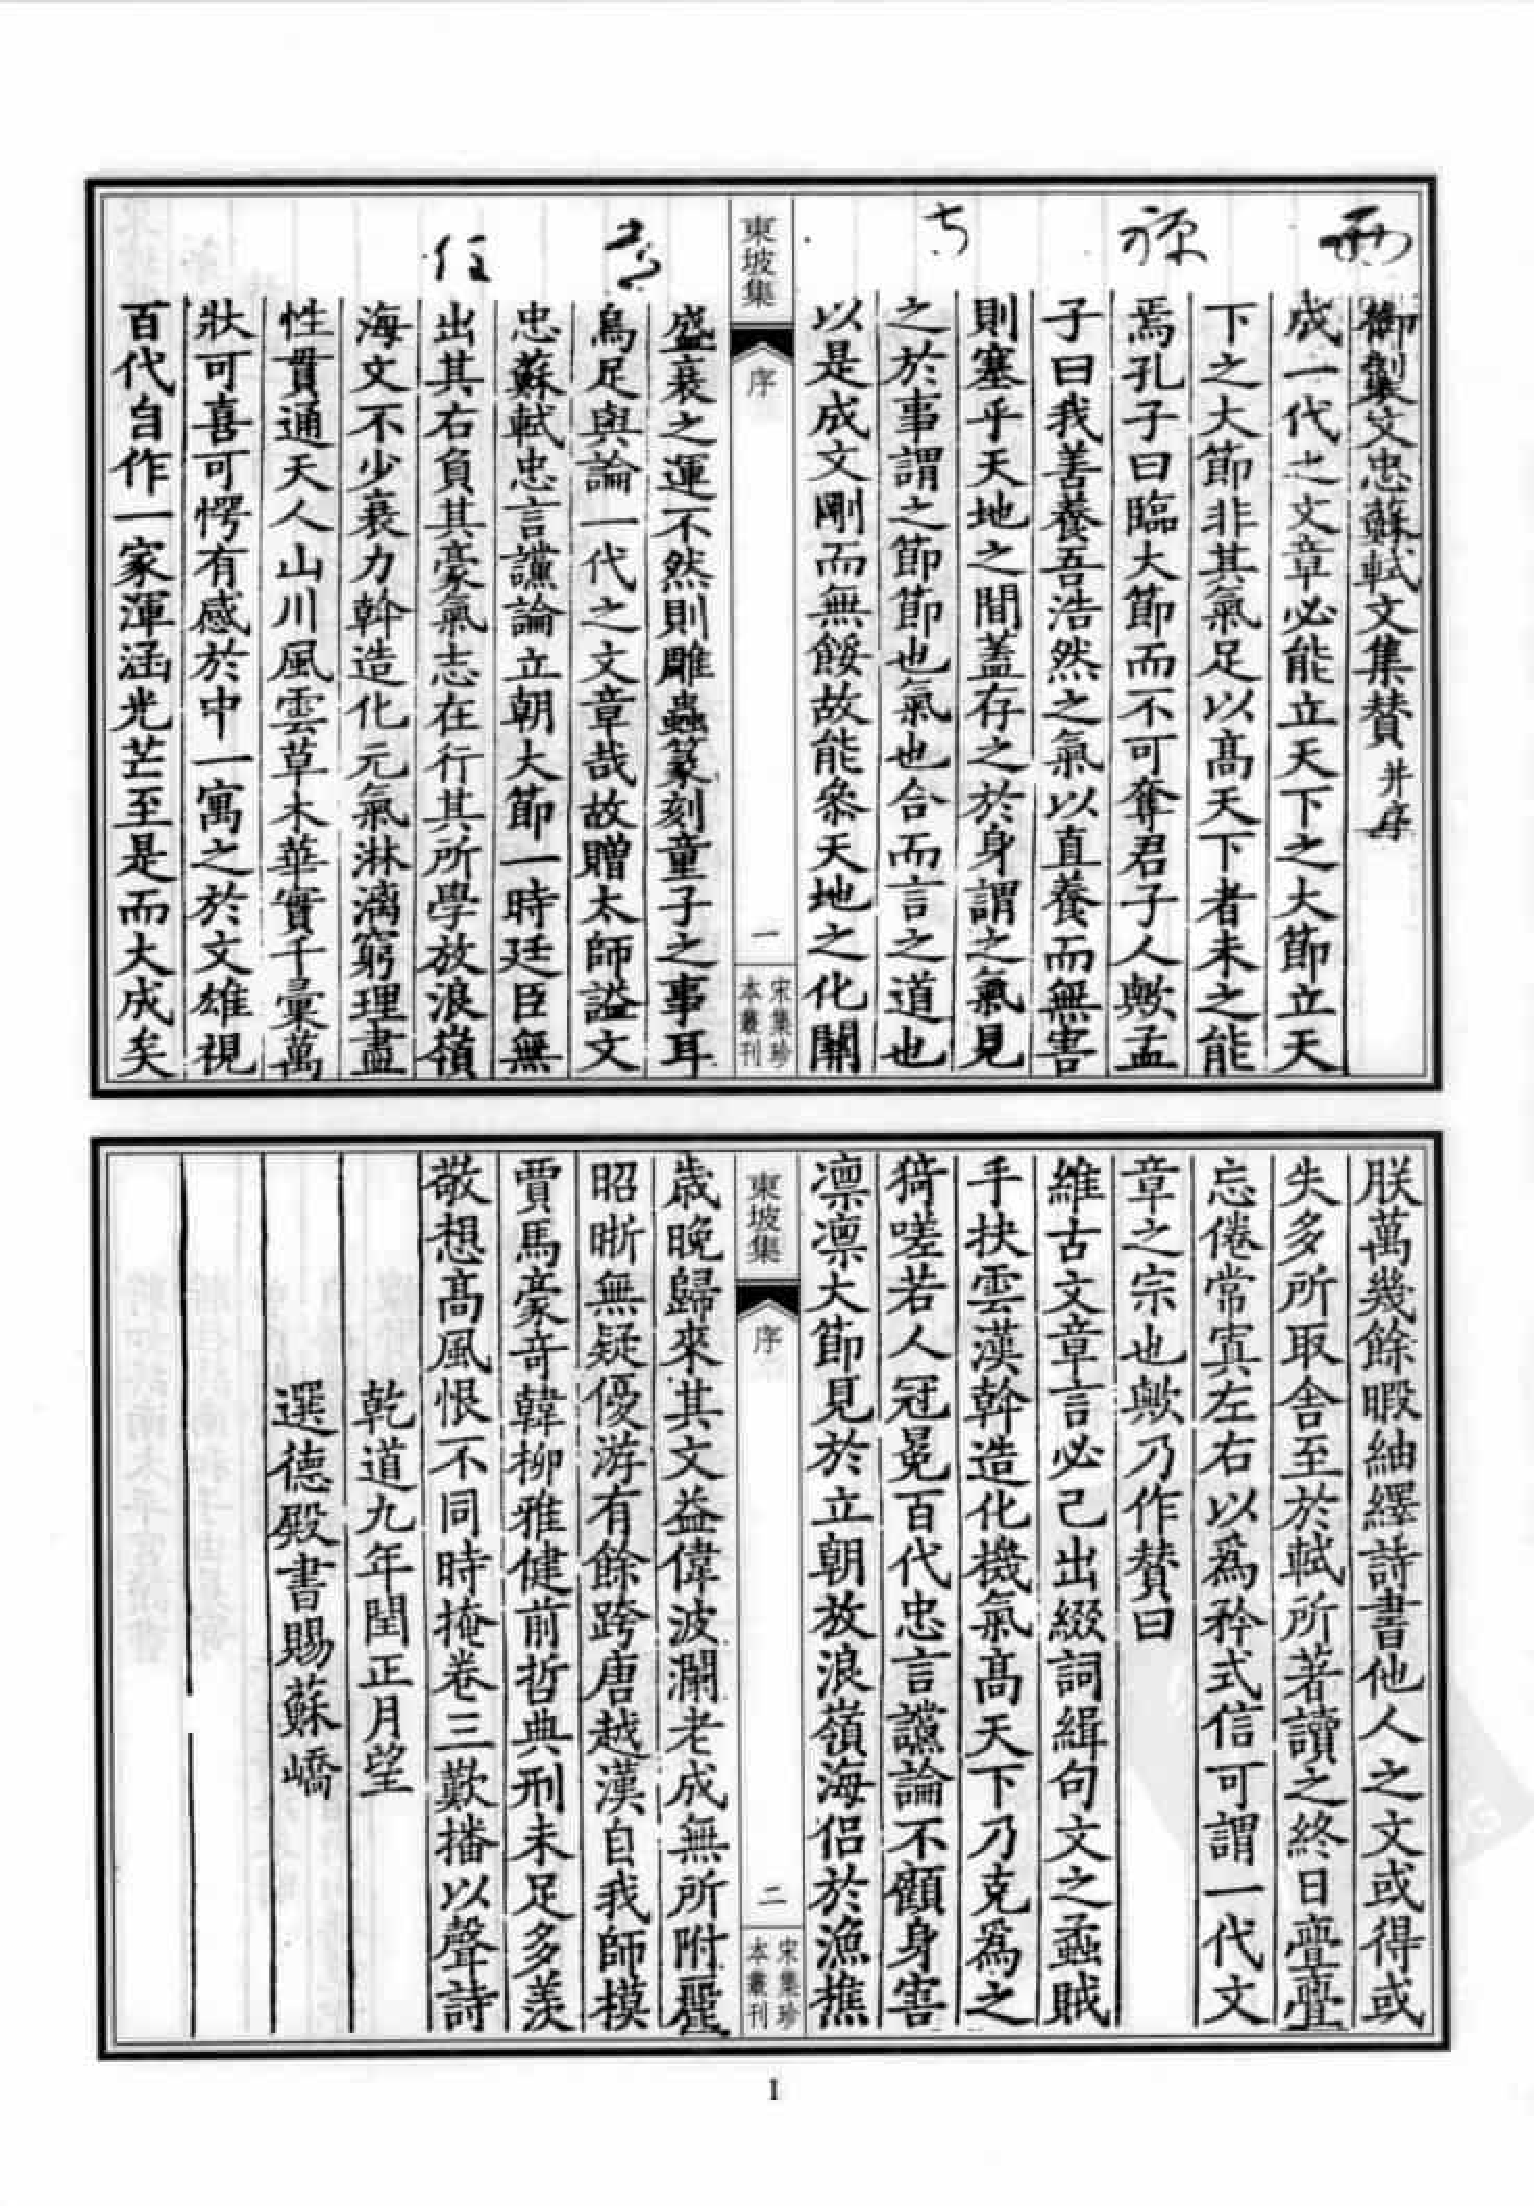 御製文忠蘇軾文集贊 并序
成一代之文章必能立天下之大節立天
下之大節非其氣足以高天下者未之能
焉孔子曰臨大節而不可奪君子人歟孟
子曰我善養吾浩然之氣以直養而無害
則塞乎天地之間蓋存之於身謂之氣見
之於事謂之節節也氣也合而言之道也
以是成文剛而無餒故能叅天地之化關
東坡集
序
一
宋集珍
本叢刊
盛衰之運不然則雕蟲篆刻童子之事耳
烏足與論一代之文章哉故贈太師謚文
忠蘇軾忠言讜論立朝大節一時廷臣無
出其右負其豪氣志在行其所學放浪嶺
海文不少衰力斡造化元氣淋漓窮理盡
性貫通天人山川風雲草木華實千彙萬
狀可喜可愕有感於中一寓之於文雄視
百代自作一家渾涵光芒至是而大成矣
朕萬幾餘暇紬繹詩書他人之文或得或
失多所取舍至於軾所著讀之終日亹亹
忘倦常寘左右以爲矜式信可謂一代文
章之宗也歟乃作贊曰
維古文章言必己出綴詞緝句文之蟊賊
手抉雲漢斡造化機氣高天下乃克爲之
猗嗟若人冠冕百代忠言讜論不顧身害
凛凛大節見於立朝放浪嶺海侣於漁樵
東坡集
序
二
宋集珍
本叢刊
歲晚歸來其文益偉波瀾老成無所附麗
昭晰無疑優游有餘跨唐越漢自我師模
賈馬豪奇韓柳雅健前哲典刑未足多羨
敬想高風恨不同時掩卷三歎播以聲詩
乾道九年閏正月望
選德殿書賜蘇嶠
1